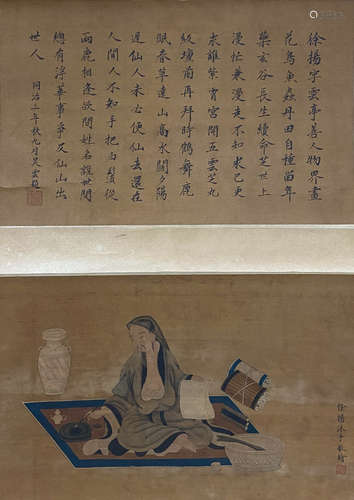 徐揚字雲亭善人物界畫
花鳥魚蟲丹田自種留年
藥玄谷長生續命芝世上
漫忙兼漫走不知求己更
求誰紫霄宮闕五雲芝九
級壇前再拜時鶴舞鹿
眠春草遠山高水闊夕陽
遲仙人未必便仙去還在
人間人不知手把白髭從
兩鹿相逢欲問姓名誰世間
總有浮華事爭及仙山出
世人
同治三年秋九月吳雲題
徐揚沐手敬繪